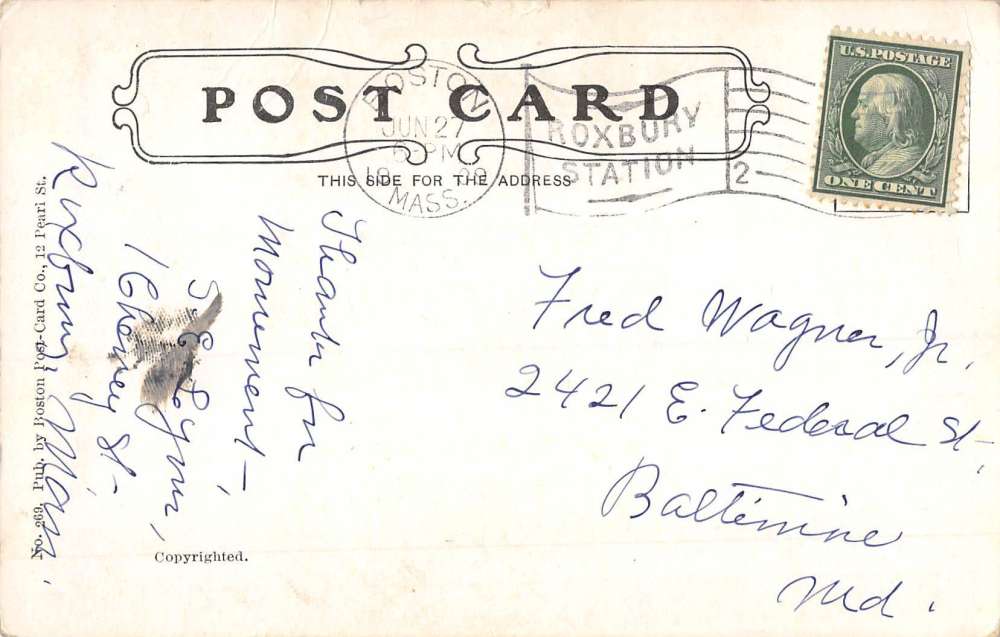 POST CARD
THIS SIDE FOR THE ADDRESS
BOSTON
JUN 27
PM
19 09
MASS.
ROXBURY
STATION
2
U.S. POSTAGE
ONE CENT
Thanks for
Monument—,
S. E.
1 Cheney St—
Roxbury, Mass.
Fred Wagner, Jr.
2421 E. Federal St.,
Baltimore
Md.
No. 269. Pub. by Boston Post-Card Co., 12 Pearl St.
Copyrighted.